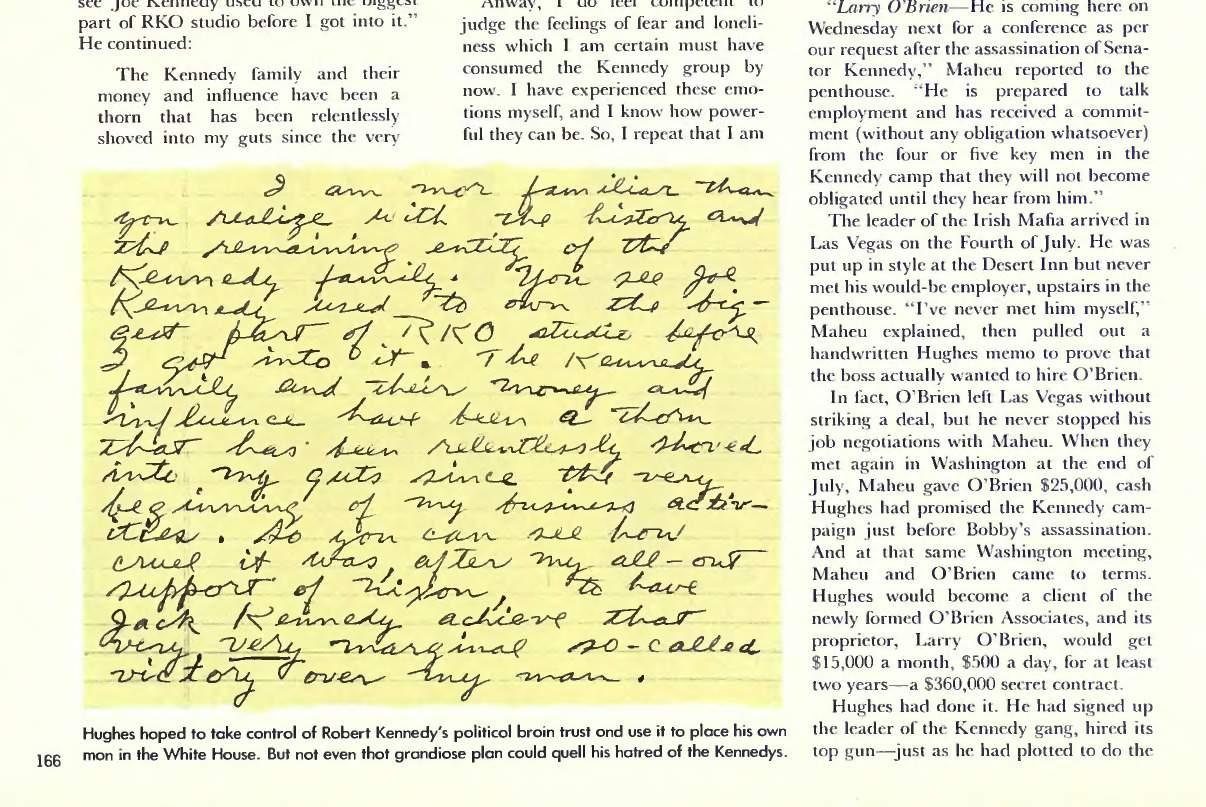 see Joe Kennedy used to own the biggest
part of RKO studio before I got into it."
He continued:
The Kennedy family and their
money and influence have been a
thorn that has been relentlessly
shoved into my guts since the very
I am mor familiar than
you realize with the history and
the remaining entity of the
Kennedy family. You see Joe
Kennedy used to own the big-
gest part of RKO studio before
I got into it. The Kennedy
family and their money and
influence have been a thorn
that has been relentlessly shoved
into my guts since the very
beginning of my business activ-
ities. So you can see how
cruel it was, after my all-out
support of Nixon, to have
Jack Kennedy achieve that
very, very marginal so-called
victory over my man.
Hughes hoped to take control of Robert Kennedy's politicol broin trust ond use it to place his own
mon in the White House. But not even thot grandiose plan could quell his hatred of the Kennedys.
166
Anway, I do feel competent to
judge the feelings of fear and loneli-
ness which I am certain must have
consumed the Kennedy group by
now. I have experienced these emo-
tions myself, and I know how power-
ful they can be. So, I repeat that I am
"Larry O'Brien—He is coming here on
Wednesday next for a conference as per
our request after the assassination of Sena-
tor Kennedy," Maheu reported to the
penthouse. "He is prepared to talk
employment and has received a commit-
ment (without any obligation whatsoever)
from the four or five key men in the
Kennedy camp that they will not become
obligated until they hear from him."
The leader of the Irish Mafia arrived in
Las Vegas on the Fourth of July. He was
put up in style at the Desert Inn but never
met his would-be employer, upstairs in the
penthouse. "I've never met him myself,"
Maheu explained, then pulled out a
handwritten Hughes memo to prove that
the boss actually wanted to hire O'Brien.
In fact, O'Brien left Las Vegas without
striking a deal, but he never stopped his
job negotiations with Maheu. When they
met again in Washington at the end of
July, Maheu gave O'Brien $25,000, cash
Hughes had promised the Kennedy cam-
paign just before Bobby's assassination.
And at that same Washington meeting,
Maheu and O'Brien came to terms.
Hughes would become a client of the
newly formed O'Brien Associates, and its
proprietor, Larry O'Brien, would get
$15,000 a month, $500 a day, for at least
two years—a $360,000 secret contract.
Hughes had done it. He had signed up
the leader of the Kennedy gang, hired its
top gun—just as he had plotted to do the